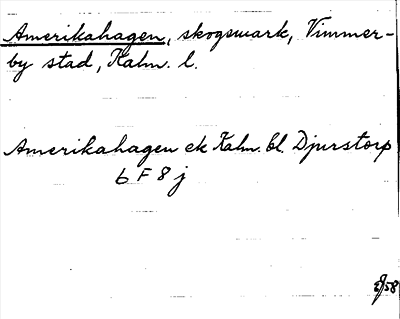 Amerikahagen, skogsmark, Vimmer-
by stad, Kalm. l.
Amerikahagen ek Kalm. bl. Djurstorp
6 F 8 j